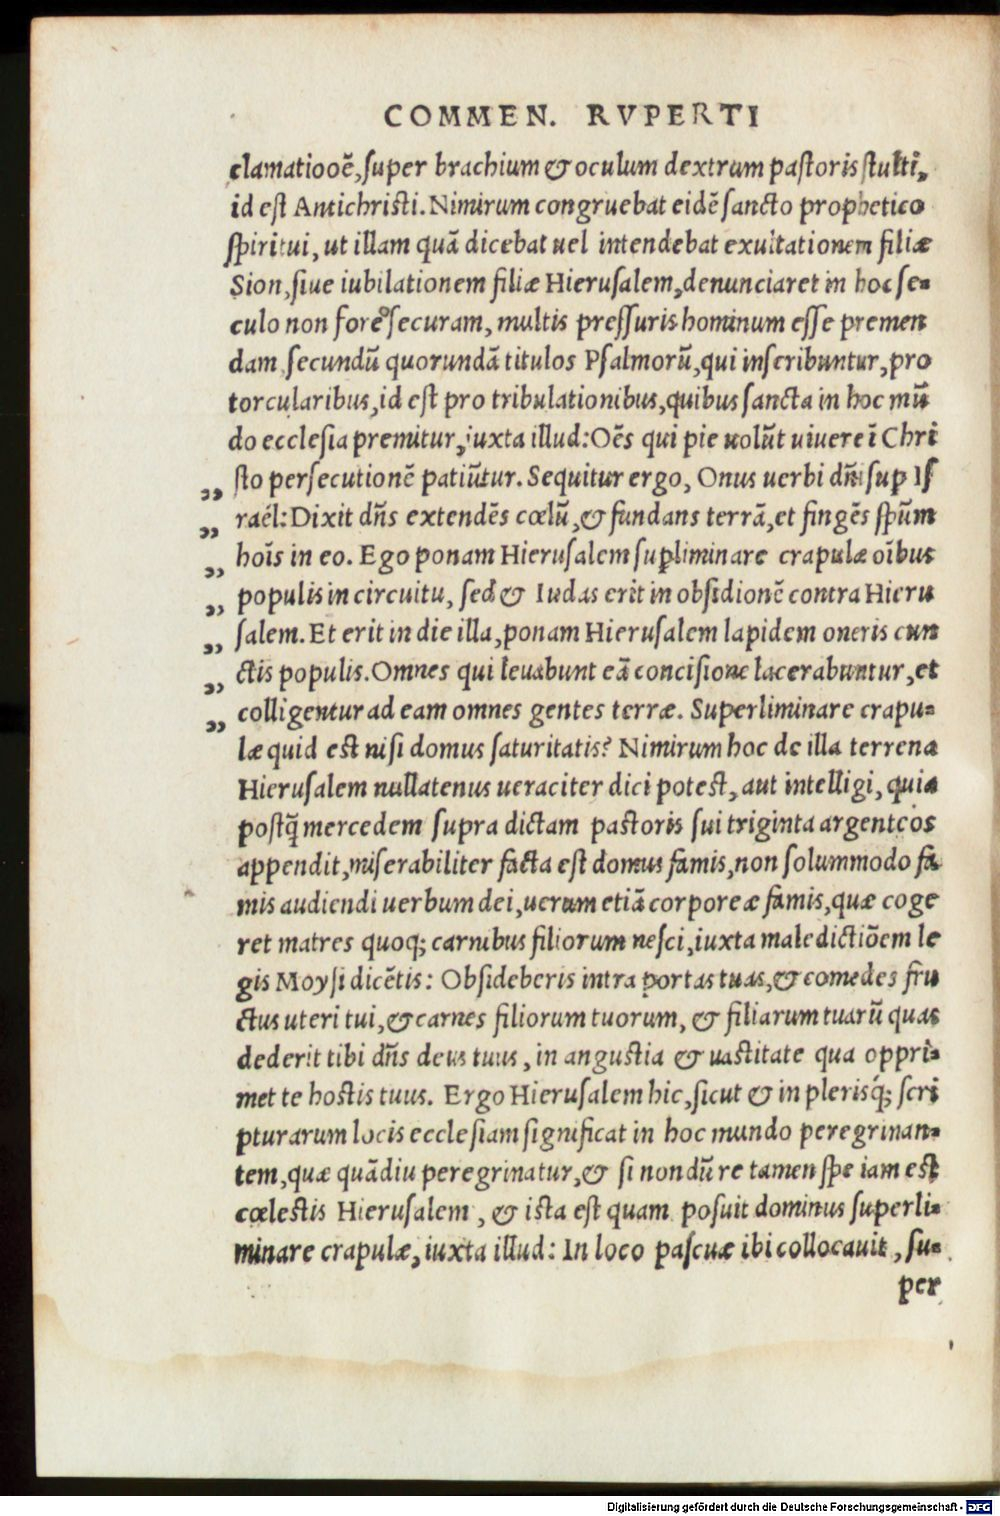 COMMEN. RVPERTI
clamatiooē, super brachium & oculum dextrum pastoris stulti,
id est Antichristi. Nimirum congruebat eidē sancto prophetico
spiritui, ut illam quā dicebat uel intendebat exultationem filiæ
Sion, siue iubilationem filiæ Hierusalem, denunciaret in hoc se-
culo non fore securam, multis pressuris hominum esse premen
dam secundū quorundā titulos Psalmorū, qui inscribuntur, pro
torcularibus, id est pro tribulationibus, quibus sancta in hoc mū
do ecclesia premitur, iuxta illud: Oēs qui pie uolūt uiuere ī Chri
„ sto persecutionē patiūtur. Sequitur ergo, Onus uerbi dñi suꝑ Is
„ raél: Dixit dñs extendēs cœlū, & fundans terrā, et fingēs spūm
„ hoīs in eo. Ego ponam Hierusalem suꝑliminare crapulæ oībus
„ populis in circuitu, sed & Iudas erit in obsidionē contra Hieru
„ salem. Et erit in die illa, ponam Hierusalem lapidem oneris cun
„ ctis populis. Omnes qui leuabunt eā concisione lacerabuntur, et
„ colligentur ad eam omnes gentes terræ. Superliminare crapu-
læ quid est nisi domus saturitatis? Nimirum hoc de illa terrena
Hierusalem nullatenus ueraciter dici potest, aut intelligi, quia
postq̄ mercedem supra dictam pastoris sui triginta argenteos
appendit, miserabiliter facta est domus famis, non solummodo fa
mis audiendi uerbum dei, uerum etiā corporeæ famis, quæ coge
ret matres quoq; carnibus filiorum nesci, iuxta maledictiōem le
gis Moysi dicētis: Obsideberis intra portas tuas, & comedes fru
ctus uteri tui, & carnes filiorum tuorum, & filiarum tuarū quas
dederit tibi dñs deus tuus, in angustia & uastitate qua oppri-
met te hostis tuus. Ergo Hierusalem hic, sicut & in plerisq́; scri
pturarum locis ecclesiam significat in hoc mundo peregrinan-
tem, quæ quādiu peregrinatur, & si nondū re tamen spe iam est
cœlestis Hierusalem, & ista est quam posuit dominus superli-
minare crapulæ, iuxta illud: In loco pascuæ ibi collocauit, su-
per
Digitalisierung gefördert durch die Deutsche Forschungsgemeinschaft - DFG